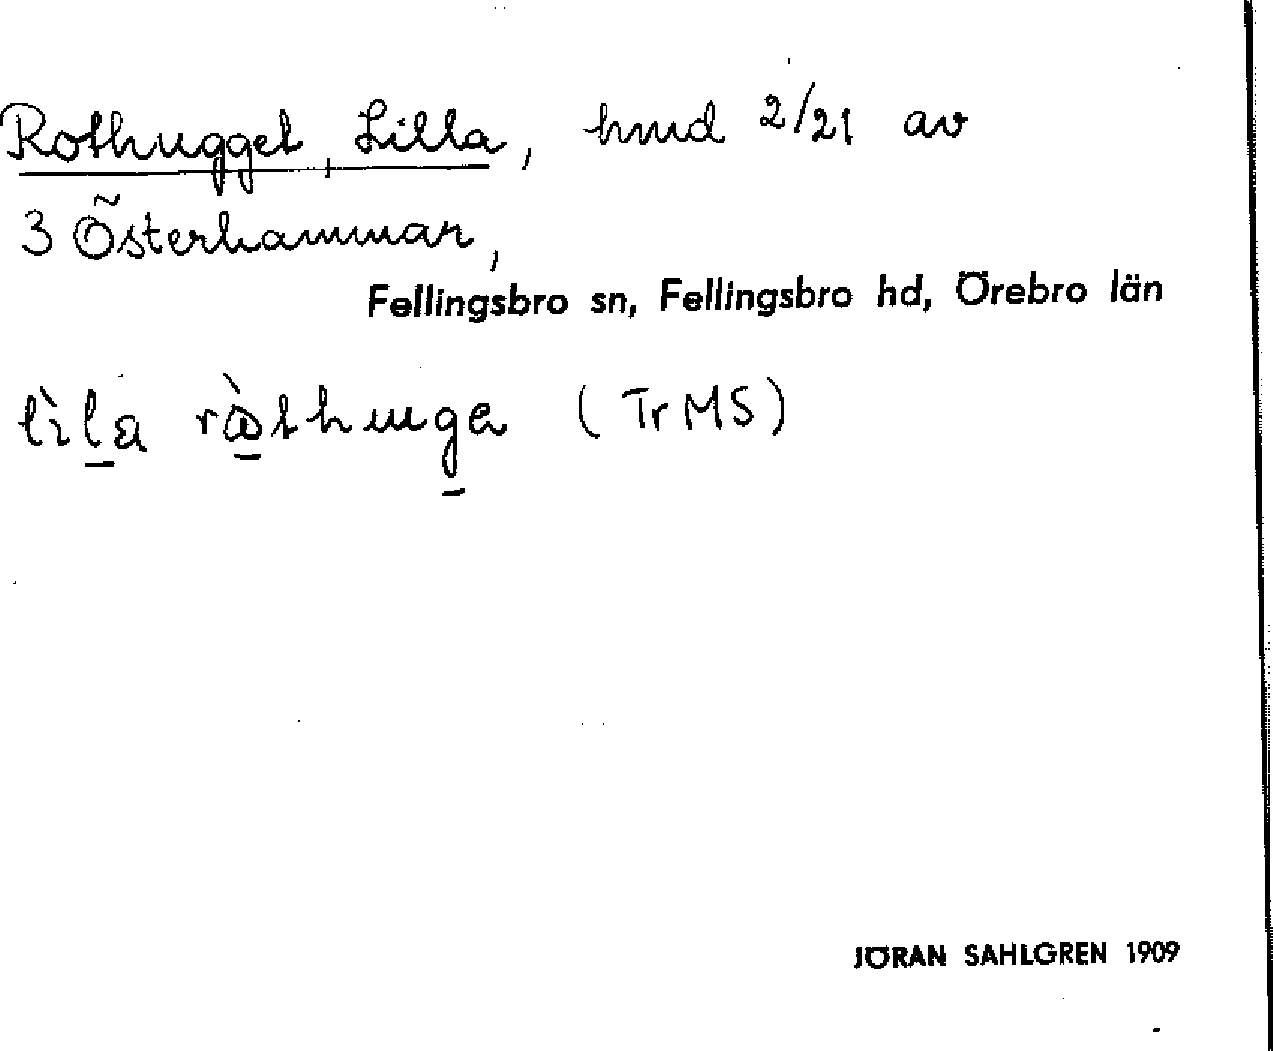 Rothugget, Lilla, hmd 2/21 av
3 Österhammar,
Fellingsbro sn, Fellingsbro hd, Örebro län
lìla ròthuga (Tr MS)
JÖRAN SAHLGREN 1909